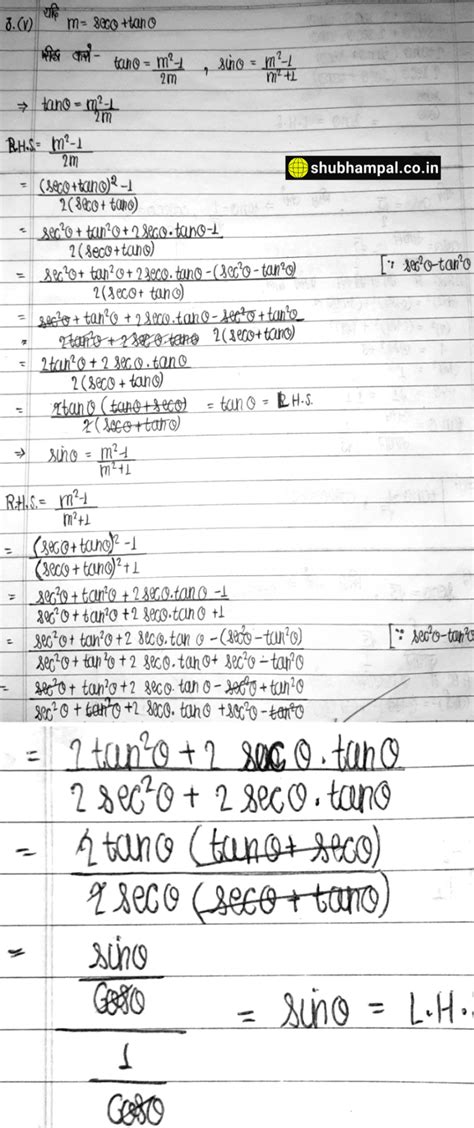 8.(V) यदि m = secθ+tanθ
सिद्ध करो- tanθ = m²-1/2m , sinθ = m²-1/m²+1
⇒ tanθ = m²-1/2m
R.H.S. = m²-1/2m
shubhampal.co.in
= (secθ+tanθ)²-1/2(secθ+tanθ)
= sec²θ+tan²θ+2secθ.tanθ-1/2(secθ+tanθ)
= sec²θ+tan²θ+2secθ.tanθ-(sec²θ-tan²θ)/2(secθ+tanθ) [∵ sec²θ-tan²θ
= sec²θ+tan²θ+2secθ.tanθ-sec²θ+tan²θ/2(secθ+tanθ)
= 2tan²θ+2secθ.tanθ/2(secθ+tanθ)
= 2tanθ(tanθ+secθ)/2(secθ+tanθ) = tanθ = L.H.S.
⇒ sinθ = m²-1/m²+1
R.H.S. = m²-1/m²+1
= (secθ+tanθ)²-1/(secθ+tanθ)²+1
= sec²θ+tan²θ+2secθ.tanθ-1/sec²θ+tan²θ+2secθ.tanθ+1
= sec²θ+tan²θ+2secθ.tanθ-(sec²θ-tan²θ)/sec²θ+tan²θ+2secθ.tanθ+sec²θ-tan²θ [∵ sec²θ-tan²θ
= sec²θ+tan²θ+2secθ.tanθ-sec²θ+tan²θ/sec²θ+tan²θ+2secθ.tanθ+sec²θ-tan²θ
= 2tan²θ+2secθ.tanθ/2sec²θ+2secθ.tanθ
= 2tanθ(tanθ+secθ)/2secθ(secθ+tanθ)
= sinθ/cosθ/1/cosθ = sinθ = L.H.